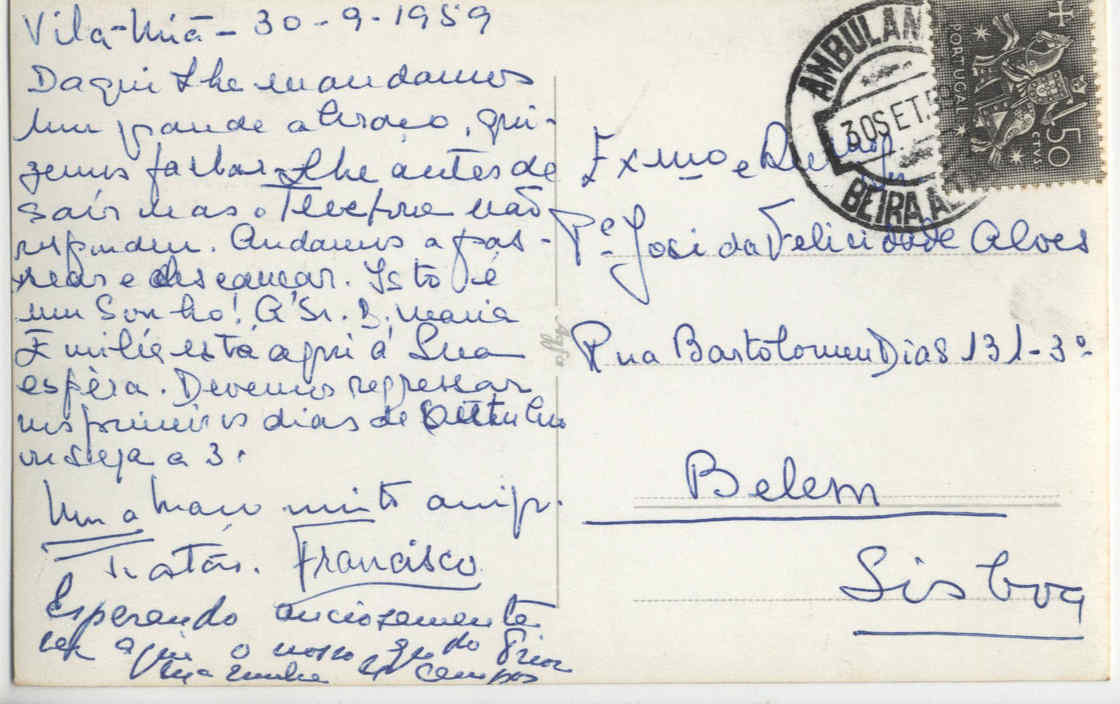 Vila-Miã - 30-9-1959
Daqui lhe mandamos
um grande abraço, qui-
zemos fallar-lhe antes de
sair mas o Telefone não
respondeu. Andamos a pas-
sear e descançar. Isto é
um Sonho! A Sr. D. Maria
Emilia está aqui á Sua
espera. Devemos regressar
nos primeiros dias de Outubro
ou seja a 3.
Um abraço muito amigo.
Francisco
Esperando anciosamente
ver aqui o nosso Prior
Campos
Exmo e Sr
Pe José da Felicidade Alves
Rua Bartolomeu Dias 131-3º
Belem
Lisboa
Agfa
AMBULAN
30 SET. 5
BEIRA A
PORTUGAL
50
CTVS